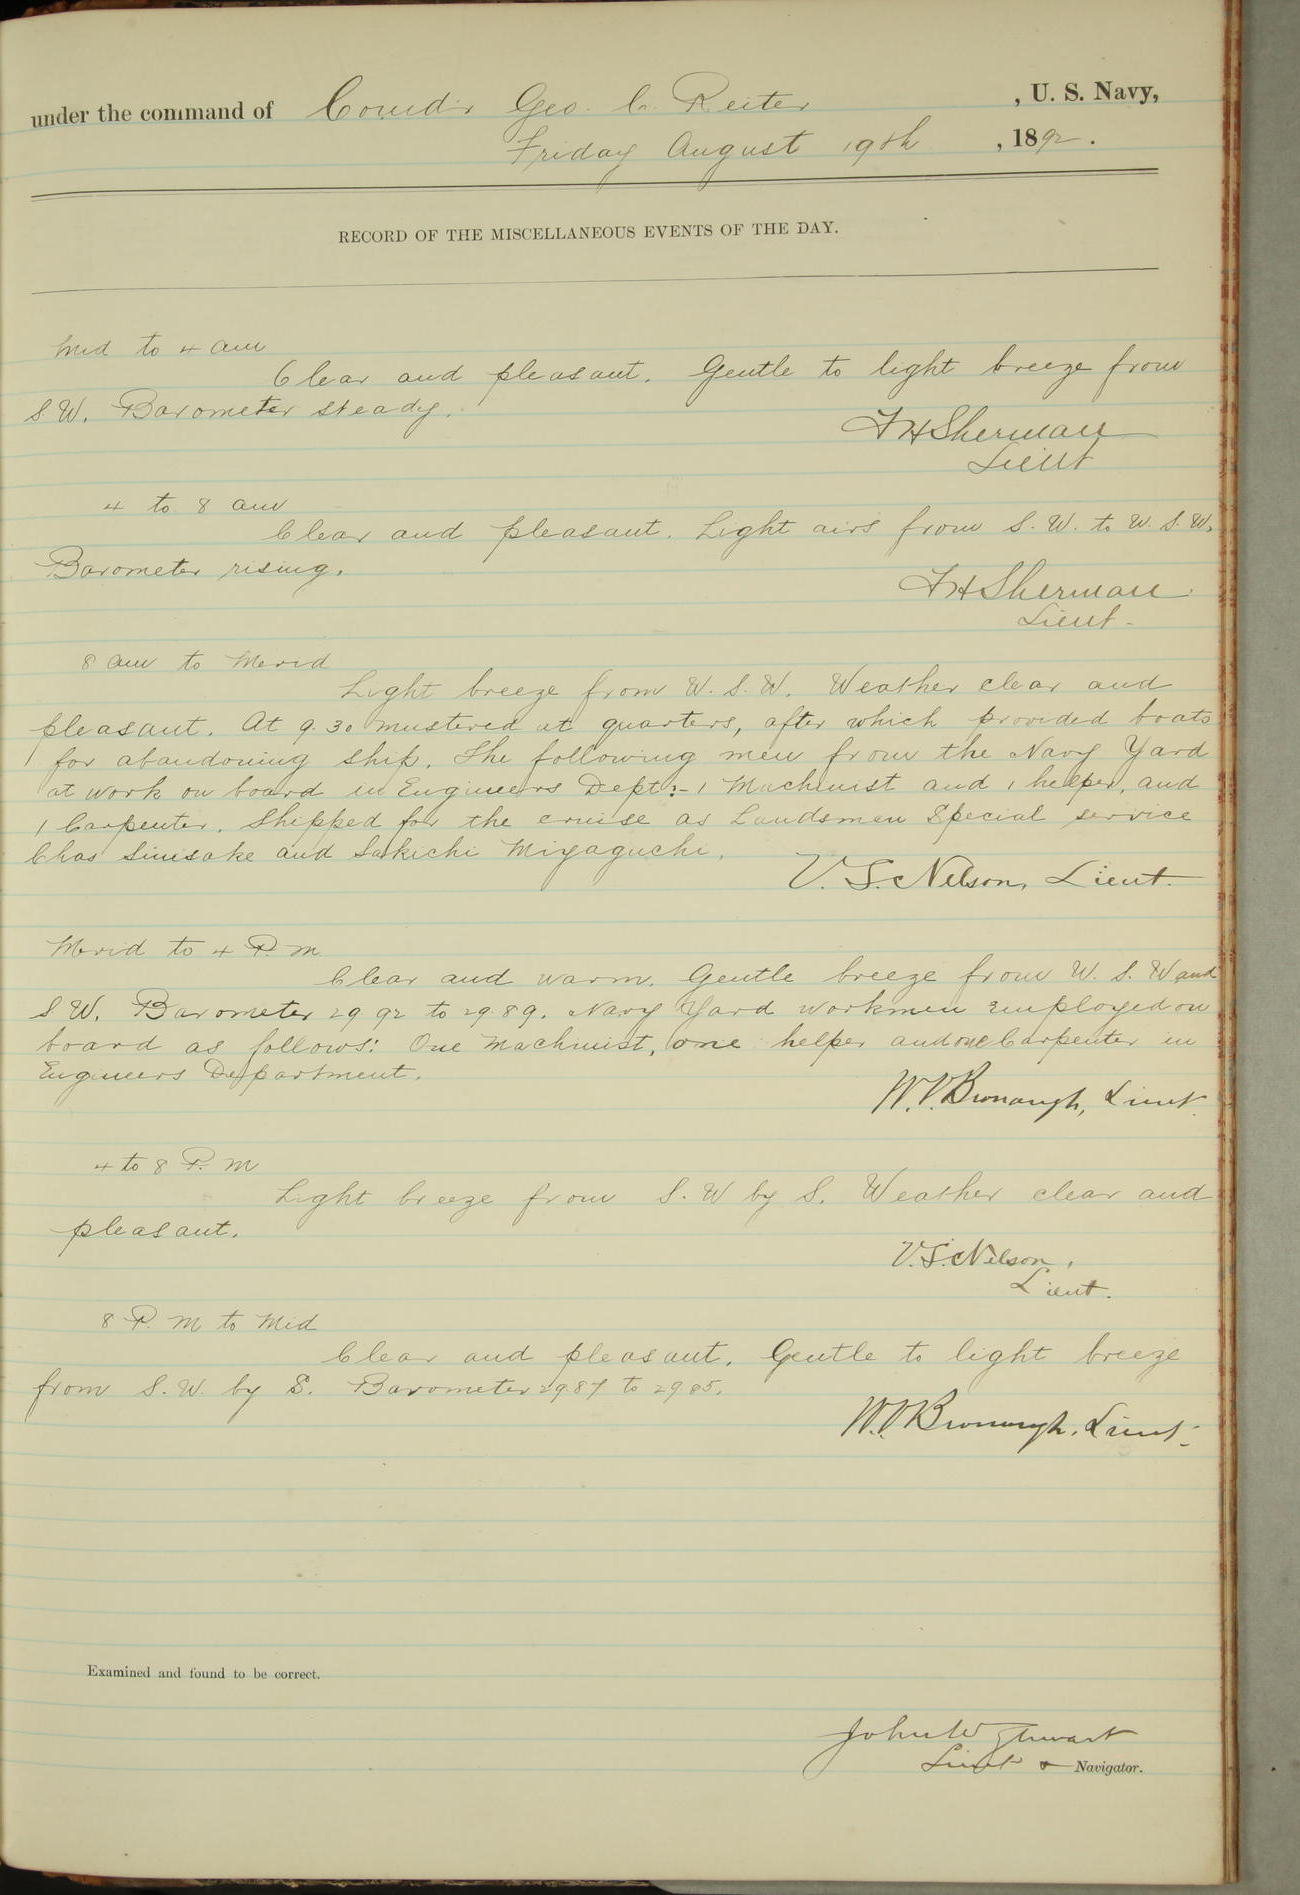 under the command of Comd'r Geo. C. Reiter , U. S. Navy,
Friday August 19th , 1892.
RECORD OF THE MISCELLANEOUS EVENTS OF THE DAY.
Mid to 4 am
Clear and pleasant. Gentle to light breeze from
S.W. Barometer steady.
FHSherman
Lieut
4 to 8 am
Clear and pleasant. Light airs from S.W. to W.S.W.
Barometer rising.
FHSherman
Lieut.
8 am to Merid
Light breeze from W.S.W. Weather clear and
pleasant. At 9.30 mustered at quarters, after which provided boats
for abandoning ship. The following men from the Navy Yard
at work on board in Engineers Dept:- 1 Machinist and 1 helper, and
1 Carpenter. Shipped for the cruise as Landsmen Special service
Chas Sinisake and Sakichi Miyaguchi.
V.S. Nelson, Lieut.
Merid to 4 P.M
Clear and warm. Gentle breeze from W.S.W and
S.W. Barometer 29 92 to 29.89. Navy Yard workmen employed on
board as follows: One Machinist, one helper and one Carpenter in
Engineers Department.
W.V.Bronaugh, Lieut.
4 to 8 P.M
Light breeze from S.W by S. Weather clear and
pleasant.
V.S.Nelson,
Lieut.
8 P.M to Mid
Clear and pleasant. Gentle to light breeze
from S.W. by S. Barometer 29.87 to 29.85.
W.V.Bronaugh, Lieut.
Examined and found to be correct.
John W Stewart
Lieut & Navigator.